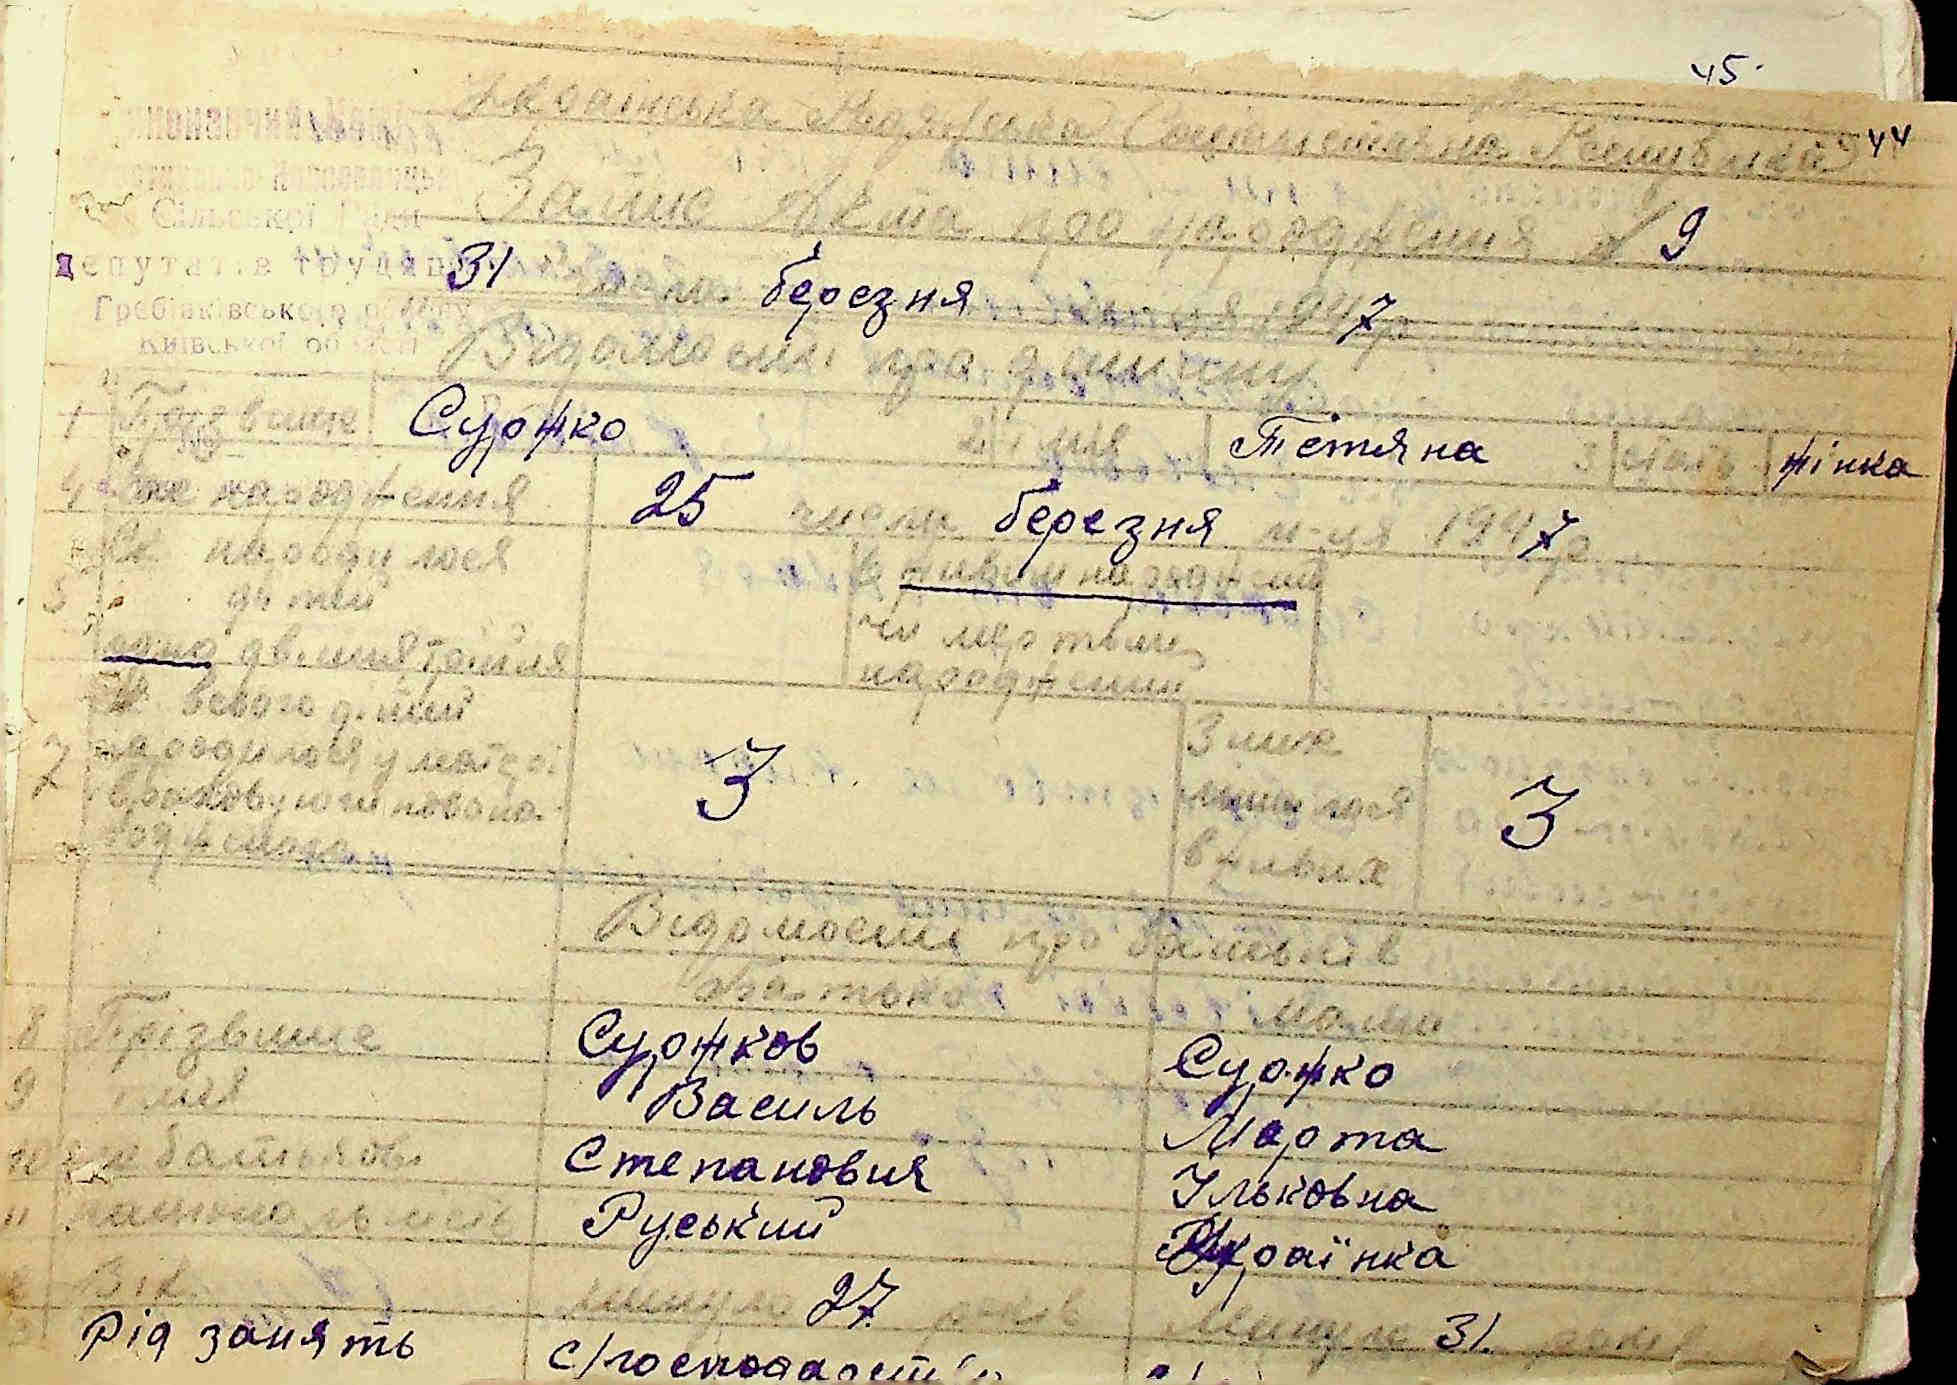 45.
44
Українська Радянська Соціалістична Республіка
Сільської Ради
Запис Акта про народження № 9
депутатів трудящ
31 березня 1947р
Гребінківського району
Київської області
Відомості про дитину
1 Прізвище Суржко 2 імія Тетяна 3 стать жінка
4 народження 25 числа березня м-ця 1947р
народилося В живим народжені
5 дітей
одно двійня трійня чи мертвим
народжений
всього дітей З них
7 народилося у матері 3 лишилося 3
враховуючи новона- в живих
родженого
Відомості про батьків
Батько Мати
8 Прізвище Суржков Суржко
9 імія Василь Марта
10 по батькові Степановия Ільковна
11 національність Руський Українка
Вік минуло 27 років Минуло 31. років
Рід занять с/господарст